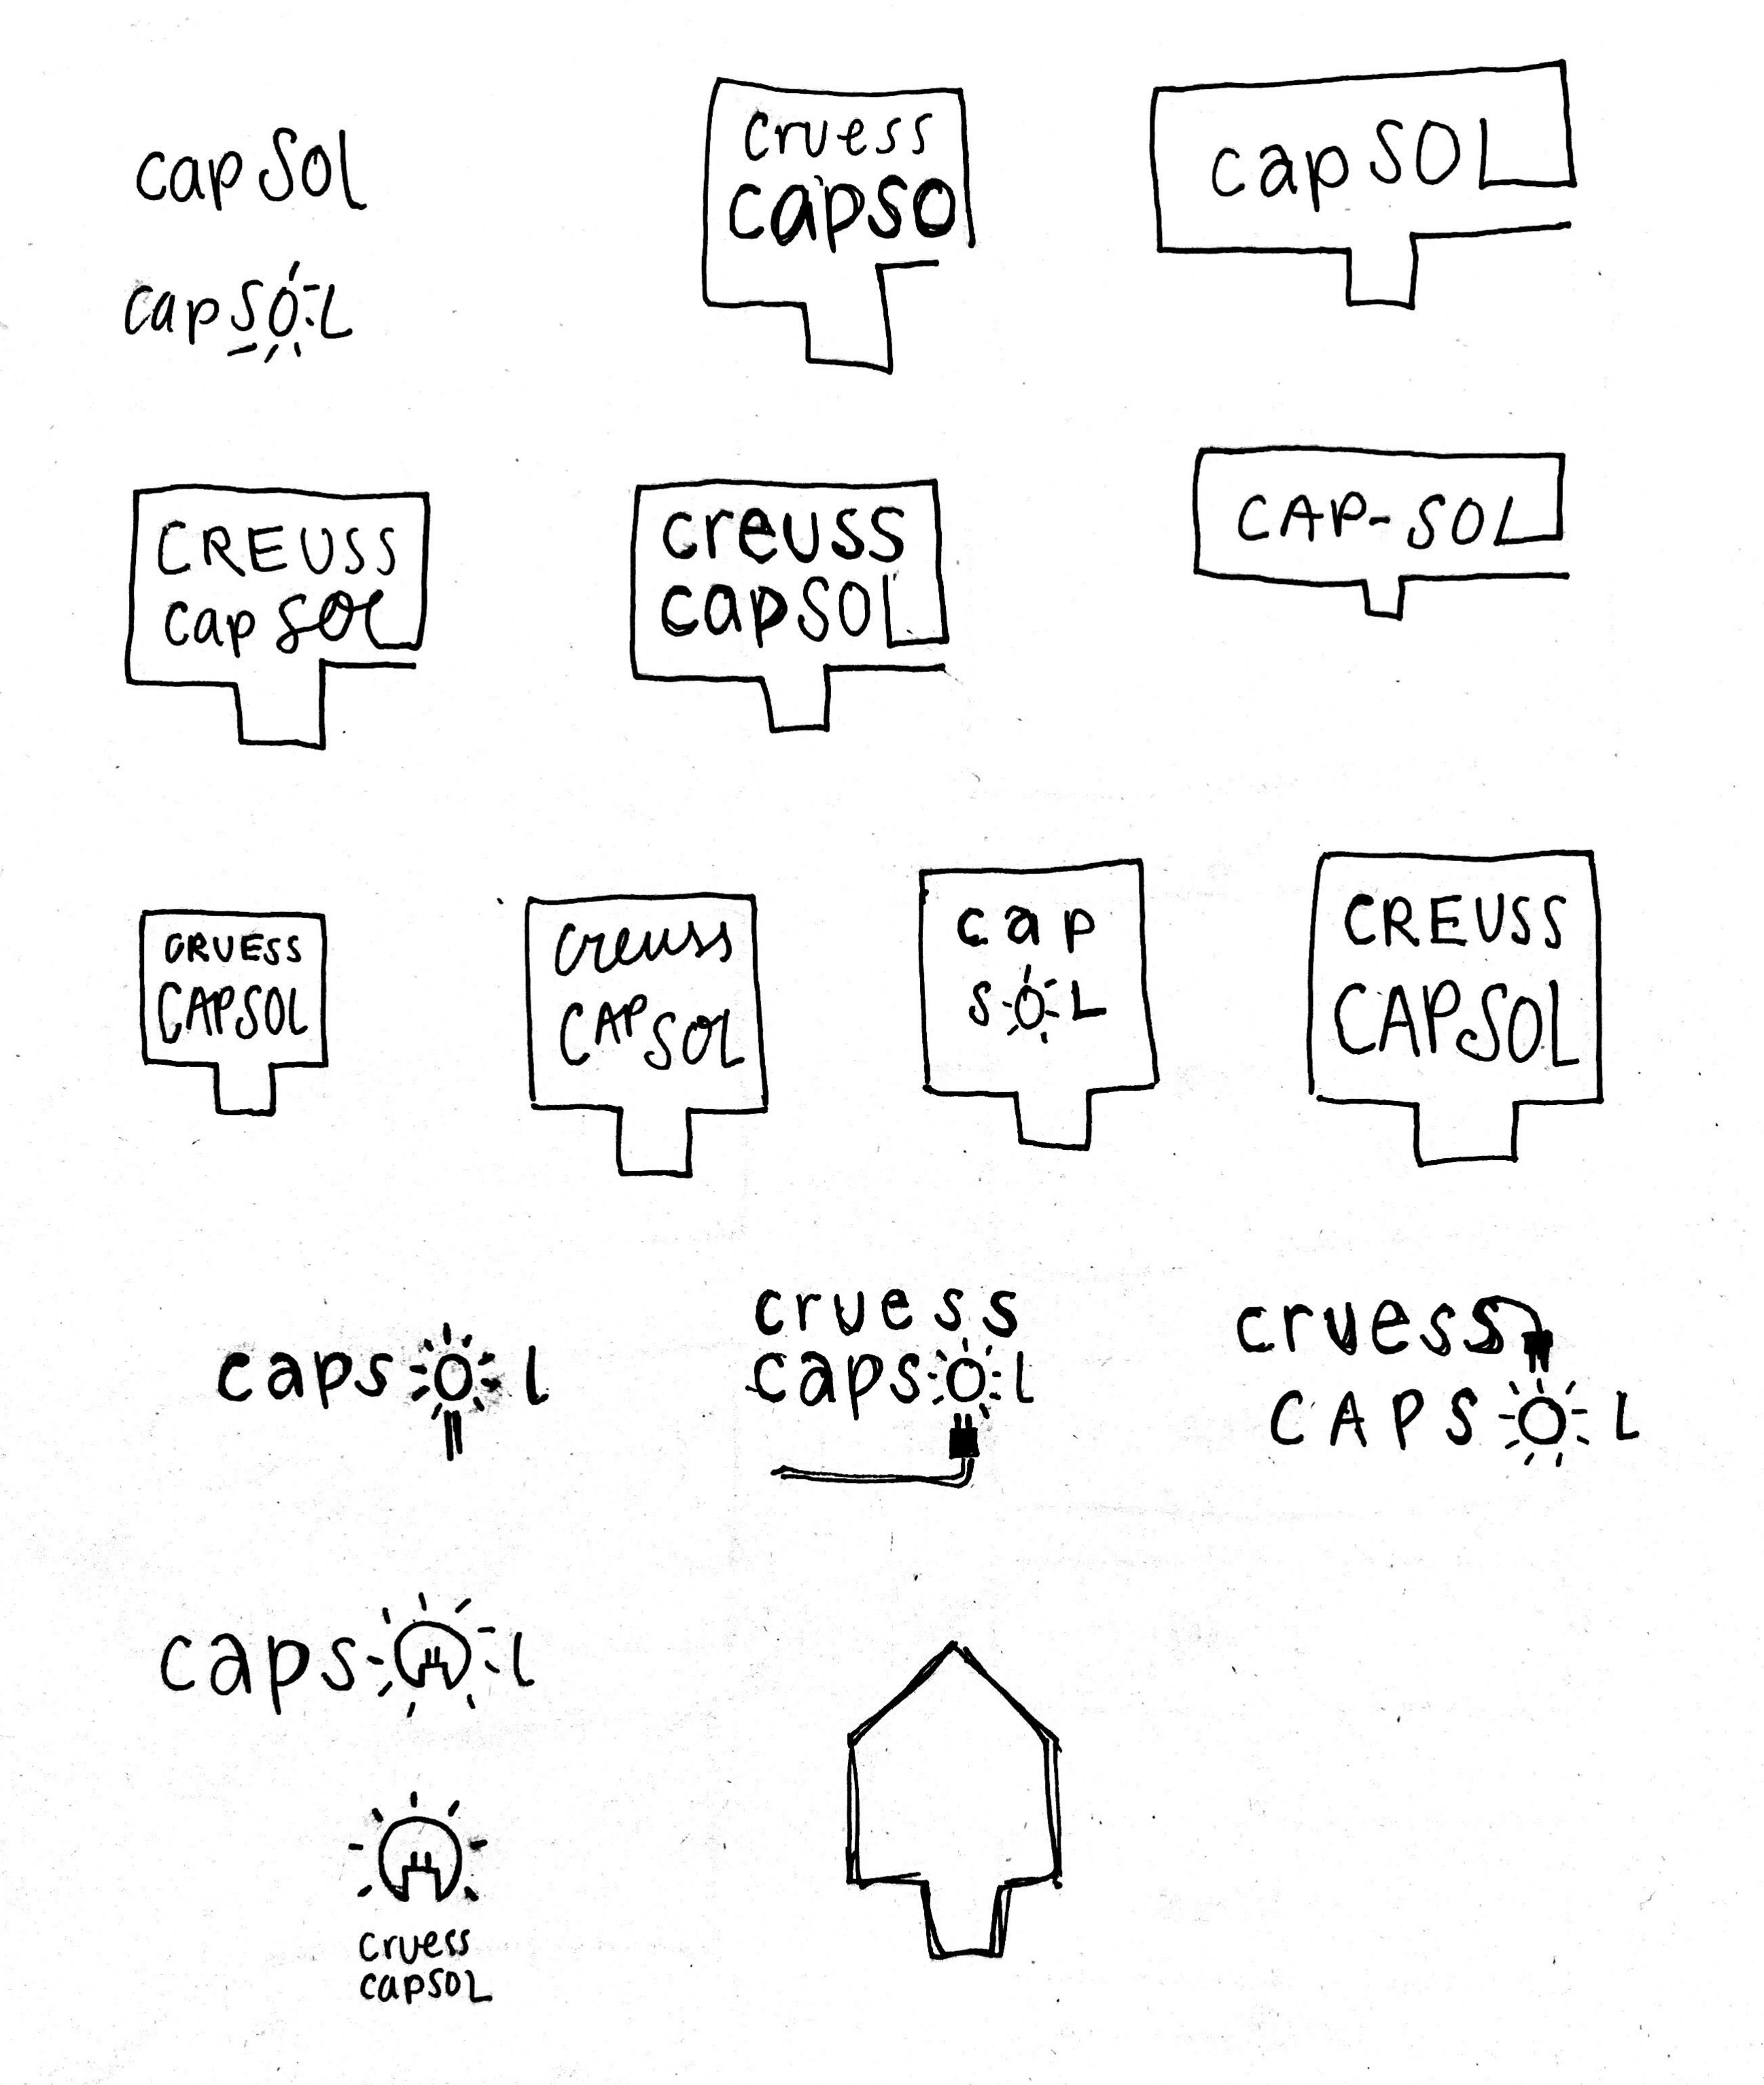 capSol
cruess
capso
capSOL
capSOL
CREUSS
capSOL
creuss
capSOL
CAP-SOL
CRUESS
CAPSOL
creuss
CAPSOL
cap
SOL
CREUSS
CAPSOL
capsol
cruess
capsol
cruess
CAPSOL
capsol
cruess
capsol